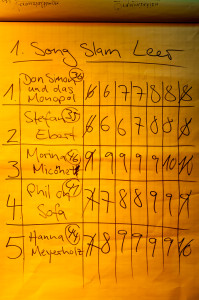 1. Song Slam Leer
1 Don Simon 36
und das
Monopol 6 6 7 7 8 8 8
2 Stefan 35
Ebert 6 6 6 7 8 8 8
3 Marina 46
9 9 9 9 9 10 10
4 Phil de 41
Sofa 7 7 8 8 9 9 9
5 Hanna 44
Meyerholz 7 8 9 9 9 9 10